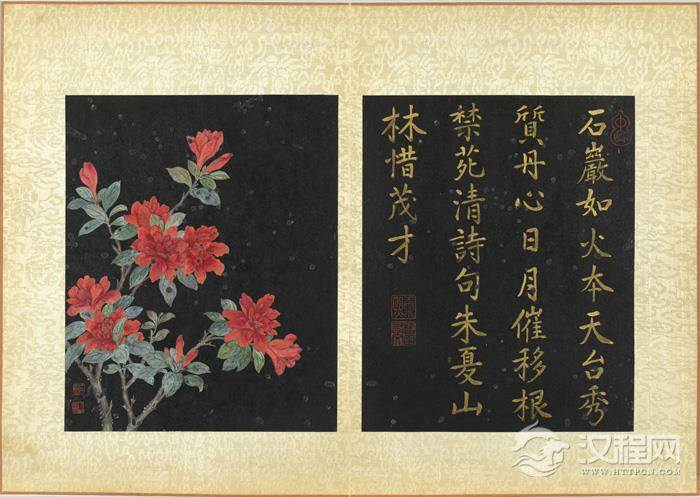 石巖如火本天台秀
質丹心日月催移根
禁苑清詩句朱夏山
林惜茂才
汉程网
WWW.HTTPCN.COM